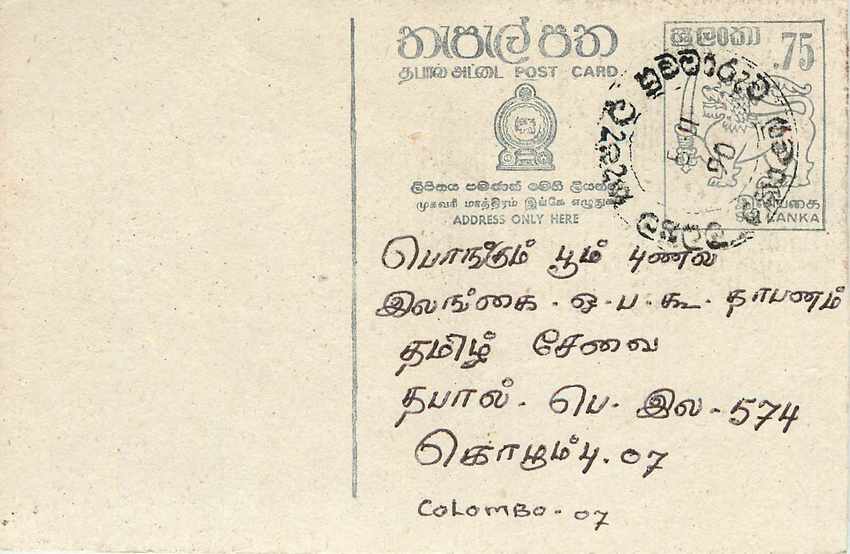 තැපැල් පත
தபால் அட்டை POST CARD
ශ්‍රී ලංකා
.75
ලිපිනය පමණක් මෙහි ලියන්න
முகவரி மாத்திரம் இங்கே எழுதுக
ADDRESS ONLY HERE
இலங்கை
SRI LANKA
பொங்கும் பூம் புனல்
இலங்கை - ஒ - ப - கூ - தாபனம்
தமிழ் சேவை
தபால் - பெ - இல - 574
கொழும்பு - 07
COLOMBO - 07